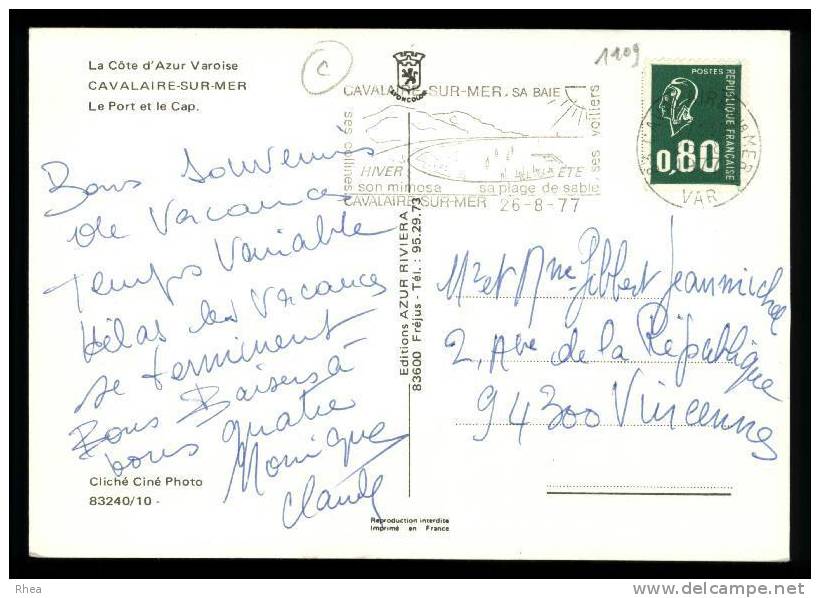 La Côte d'Azur Varoise
CAVALAIRE-SUR-MER
Le Port et le Cap.
C
1109
CAVALAIRE-SUR-MER, SA BAIE
ses collines
ses voiliers
HIVER
ÉTÉ
son mimosa
sa plage de sable
CAVALAIRE-SUR-MER
26-8-77
POSTES
REPUBLIQUE FRANÇAISE
0,80
VAR
Bons souvenirs
de vacances
temps variable
Hélas les vacances
se terminent
Bons Baisers à
vous quatre
Monique
Claude
Editions AZUR RIVIERA
83600 Fréjus - Tél. : 95.29.73
Mr et Mme Gilbert Jeanmichel
2, Ave de la République
94300 Vincennes
Cliché Ciné Photo
83240/10 -
Reproduction interdite
Imprimé en France
Rhea
delcampe.net